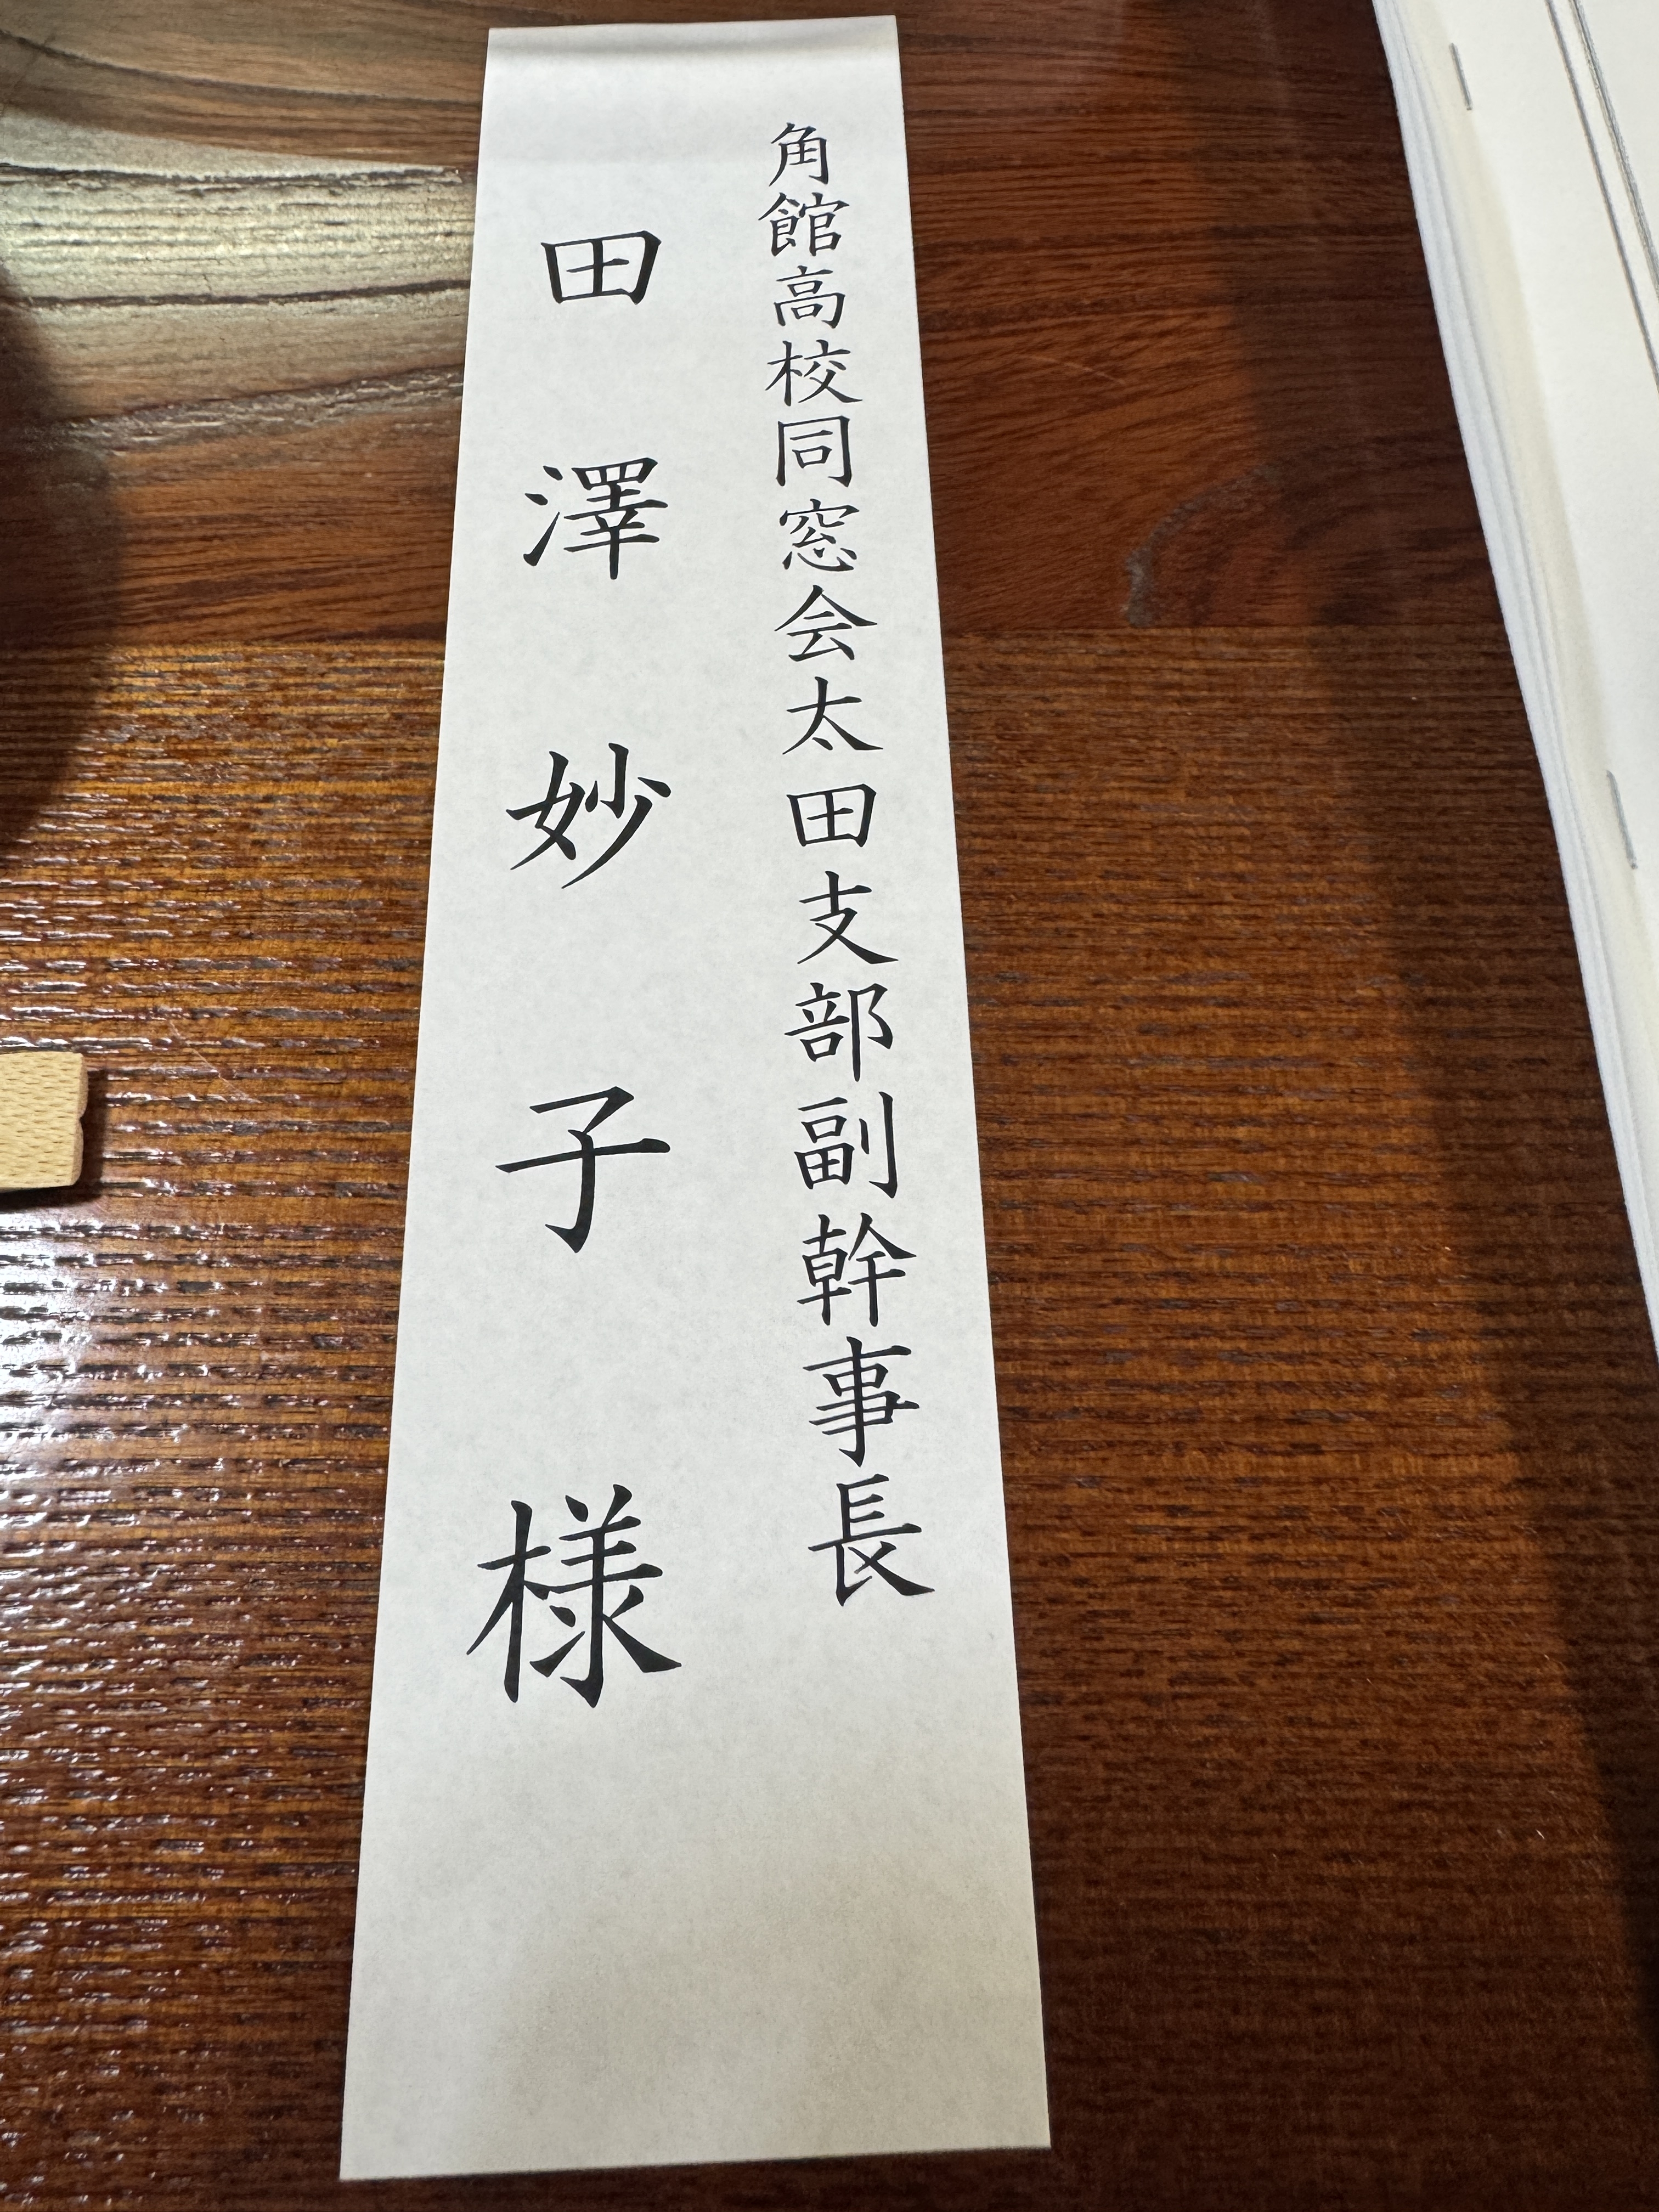 角館高校同窓会太田支部副幹事長
田澤妙子様